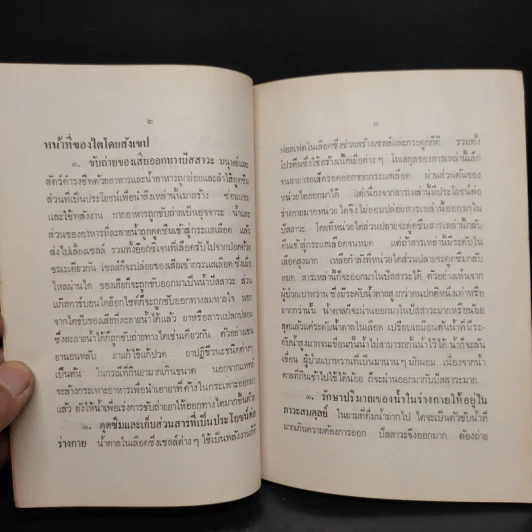 ๒
หน้าที่ของไตโดยสังเขป
๑. ขับถ่ายของเสียออกทางปัสสาวะ มนุษย์และ
สัตว์ดำรงชีพด้วยอาหารและน้ำอาหารถูกย่อยและลำไส้ดูดซึม
ส่วนที่เป็นประโยชน์เพื่อนำสิ่งเหล่านั้นมาสร้าง ซ่อมแซม
และใช้พลังงาน กากอาหารถูกขับถ่ายเป็นอุจจาระ น้ำและ
ส่วนของอาหารที่ละลายน้ำถูกดูดซึมเข้าสู่กระแสเลือด แล้ว
ส่งไปเลี้ยงเซลล์ รวมทั้งอ๊อกซิเจนที่เลือดรับไปจากปอดด้วย
ขณะเดียวกัน เซลล์ก็จะปล่อยของเสียเข้ากระแสเลือด ซึ่งเมื่อ
ไหลผ่านไต ของเสียก็จะถูกขับออกมาเป็นน้ำปัสสาวะ ส่วน
แก๊สคาร์บอนไดอ๊อกไซด์ก็จะถูกขับออกทางลมหายใจ นอก
จากไตขับของเสียที่ละลายน้ำได้แล้ว ยาหรือสารแปลกปลอม
ซึ่งละลายน้ำได้ก็ถูกขับถ่ายทางไตเช่นเดียวกัน ตัวอย่างเช่น
ยานอนหลับ ยาแก้ไข้แก้ปวด ยาปฏิชีวนะชนิดต่างๆ
เป็นต้น ในกรณีที่กินยามากเกินขนาด นอกจากแพทย์
จะล้างกระเพาะอาหารเพื่อนำเอายาที่ค้างในกระเพาะออกมา
แล้ว ยังให้น้ำเพื่อเร่งการขับถ่ายยาให้ออกทางไตมากขึ้นด้วย
๒. ดูดซึมและเก็บส่วนสารที่เป็นประโยชน์ต่อ
ร่างกาย น้ำตาลในเลือดซึ่งเซลล์ต่างๆ ใช้เป็นพลังงานก็ดี
๓
ฟอสเฟตในเลือดซึ่งช่วยสร้างเซลล์และกระดูกก็ดี รวมทั้ง
โปรตีนซึ่งใช้สร้างเนื้อเยื่อต่างๆ โมเลกุลของสารเหล่านี้เล็ก
จนสามารถเล็ดรอดออกจากกระแสเลือด ผ่านส่วนต้นของ
หน่วยไตออกมาได้ แต่เนื่องจากสารเหล่านี้มีประโยชน์ต่อ
ร่างกายมากหน่วยไตจึงไม่ยอมปล่อยสารเหล่านี้ออกมาใน
ปัสสาวะ โดยที่หน่วยไตส่วนปลายจะดูดซึมสารเหล่านี้กลับ
คืนเข้าสู่กระแสเลือดจนหมด แต่ถ้าสารเหล่านี้มีระดับใน
เลือดสูงมาก เหลือกำลังที่หน่วยไตส่วนปลายจะดูดคืนกลับ
หมด สารเหล่านี้ก็จะออกมาในปัสสาวะได้ ตัวอย่างเห็นจาก
ผู้ป่วยเบาหวาน ซึ่งมีระดับน้ำตาลสูงกว่าคนปกติหนึ่งเท่าหรือ
มากกว่านั้น น้ำตาลก็จะผ่านออกมาในปัสสาวะมากหรือน้อย
สุดแล้วแต่ระดับน้ำตาลในเลือด เปรียบเสมือนทำนบที่มีระ-
ดับน้ำสูงมากจนเขื่อนกั้นน้ำไม่สามารถกั้นน้ำไว้ได้ น้ำก็จะล้น
เขื่อน ผู้ป่วยเบาหวานที่เป็นมานานๆ มักผอม เนื่องจากน้ำ
ตาลที่กินเข้าไปใช้ได้น้อย ก็จะผ่านออกมากับปัสสาวะมาก
๓. รักษาปริมาณของน้ำในร่างกายให้อยู่ใน
ภาวะสมดุลย์ ในยามที่ดื่มน้ำมากไป ไตจะเป็นตัวขับน้ำที่
มากเกินความต้องการออก ปัสสาวะจึงออกมาก ต้องถ่าย